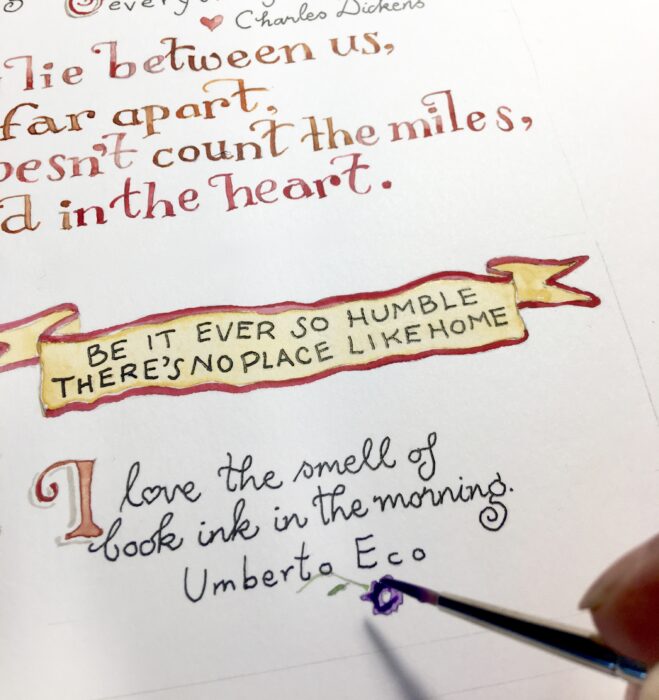 Charles Dickens
lie between us,
far apart,
count the miles,
in the heart.
BE IT EVER SO HUMBLE
THERE'S NO PLACE LIKE HOME
I love the smell of
book ink in the morning.
Umberto Eco